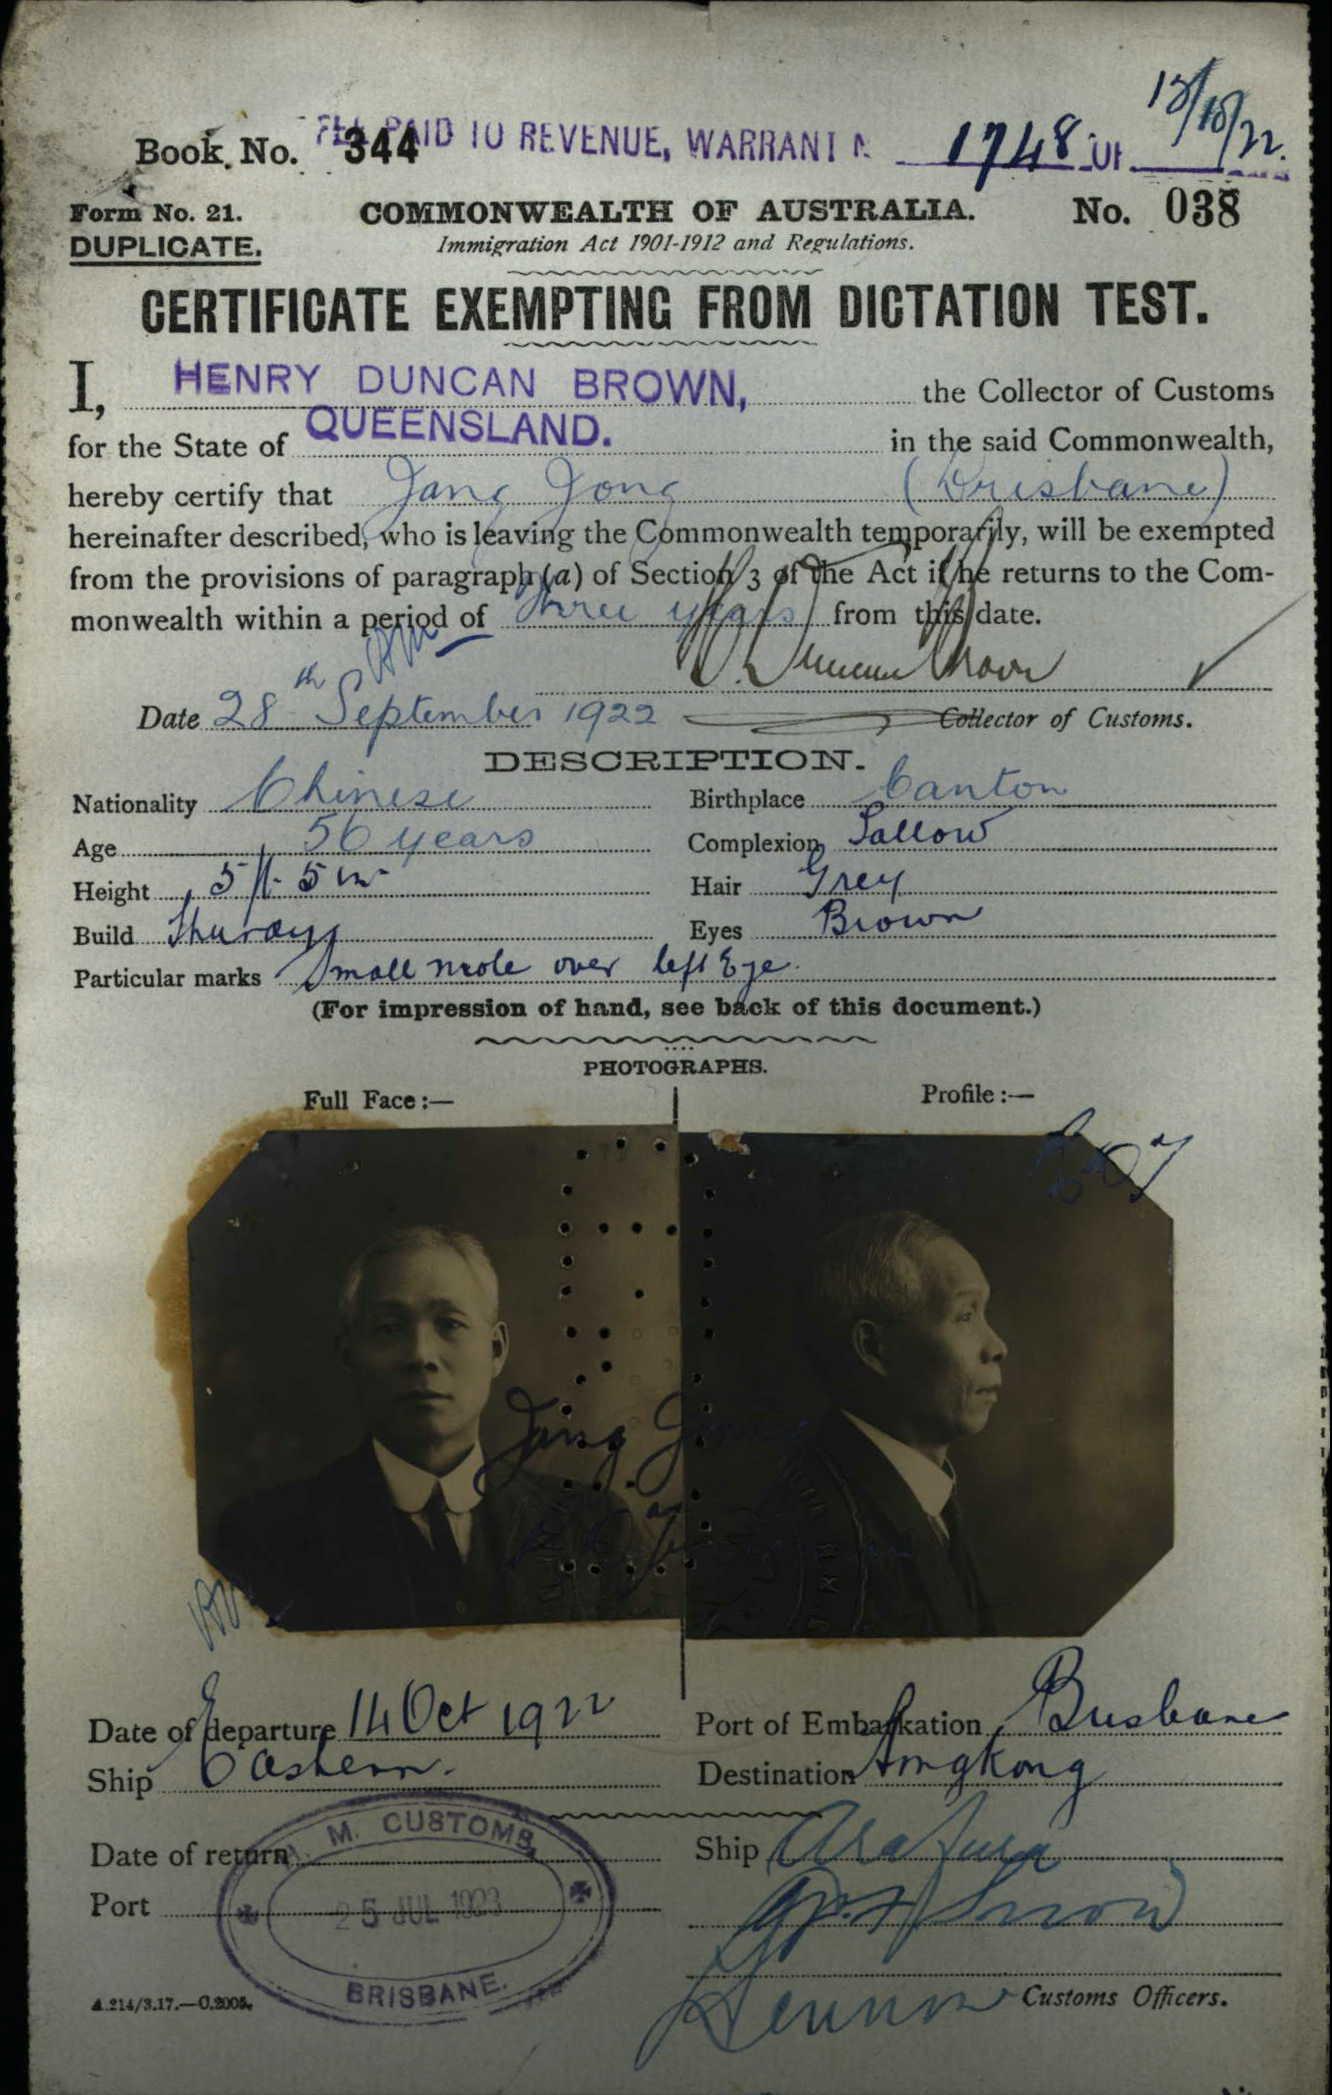 13/10/22.
Book No. 344 FEE PAID TO REVENUE, WARRANT N 1748 OF
Form No. 21. COMMONWEALTH OF AUSTRALIA. No. 038
DUPLICATE. Immigration Act 1901-1912 and Regulations.
CERTIFICATE EXEMPTING FROM DICTATION TEST.
I, HENRY DUNCAN BROWN, the Collector of Customs
for the State of QUEENSLAND. in the said Commonwealth,
hereby certify that Jang Jong (Brisbane)
hereinafter described, who is leaving the Commonwealth temporarily, will be exempted
from the provisions of paragraph (a) of Section 3 of the Act if he returns to the Com-
monwealth within a period of Three years from this date.
H. Duncan Brown
Date 28th September 1922 Collector of Customs.
DESCRIPTION.
Nationality Chinese Birthplace Canton
Age 56 years Complexion Sallow
Height 5 ft. 5 in. Hair Grey
Build Eyes Brown
Particular marks Small mole over left Eye.
(For impression of hand, see back of this document.)
PHOTOGRAPHS.
Full Face:— Profile:—
Jang Jong
Date of departure 14 Oct 1922 Port of Embarkation Brisbane
Ship Eastern. Destination Hongkong
M. CUSTOMS,
Date of return Ship Arafura
Port 25 JUL 1923
BRISBANE.
A.214/3.17.—C.2005. Customs Officers.